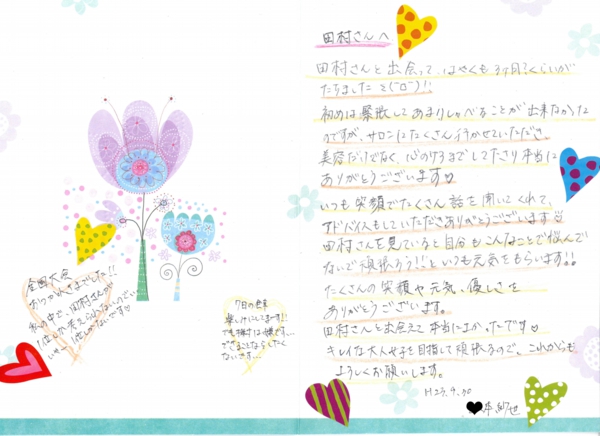 田村さんへ
田村さんと出会って、はやくも3ヶ月?くらいが
たちました
初めは緊張してあまりしゃべることが出来なかった
のですが、サロンにたくさん行かせていただき
美容だけでなく、心のケアまでしてくださり本当に
ありがとうございます♡
いつも笑顔でたくさん話を聞いてくれて、
アドバイスもしていただきありがとうございます
田村さんを見ていると自分もこんなことで悩んで
ないで頑張ろう!!といつも元気をもらいます!!
たくさんの笑顔や元気、優しさを
ありがとうございます。
田村さんと出会えて本当によかったです♡
キレイな大人女子を目指して頑張るので、これからも
よろしくお願いします。
H27.9.30
全国大会
おつかれさまでした!!
私の中で、田村さんが
7日の
楽しみにしてます!!